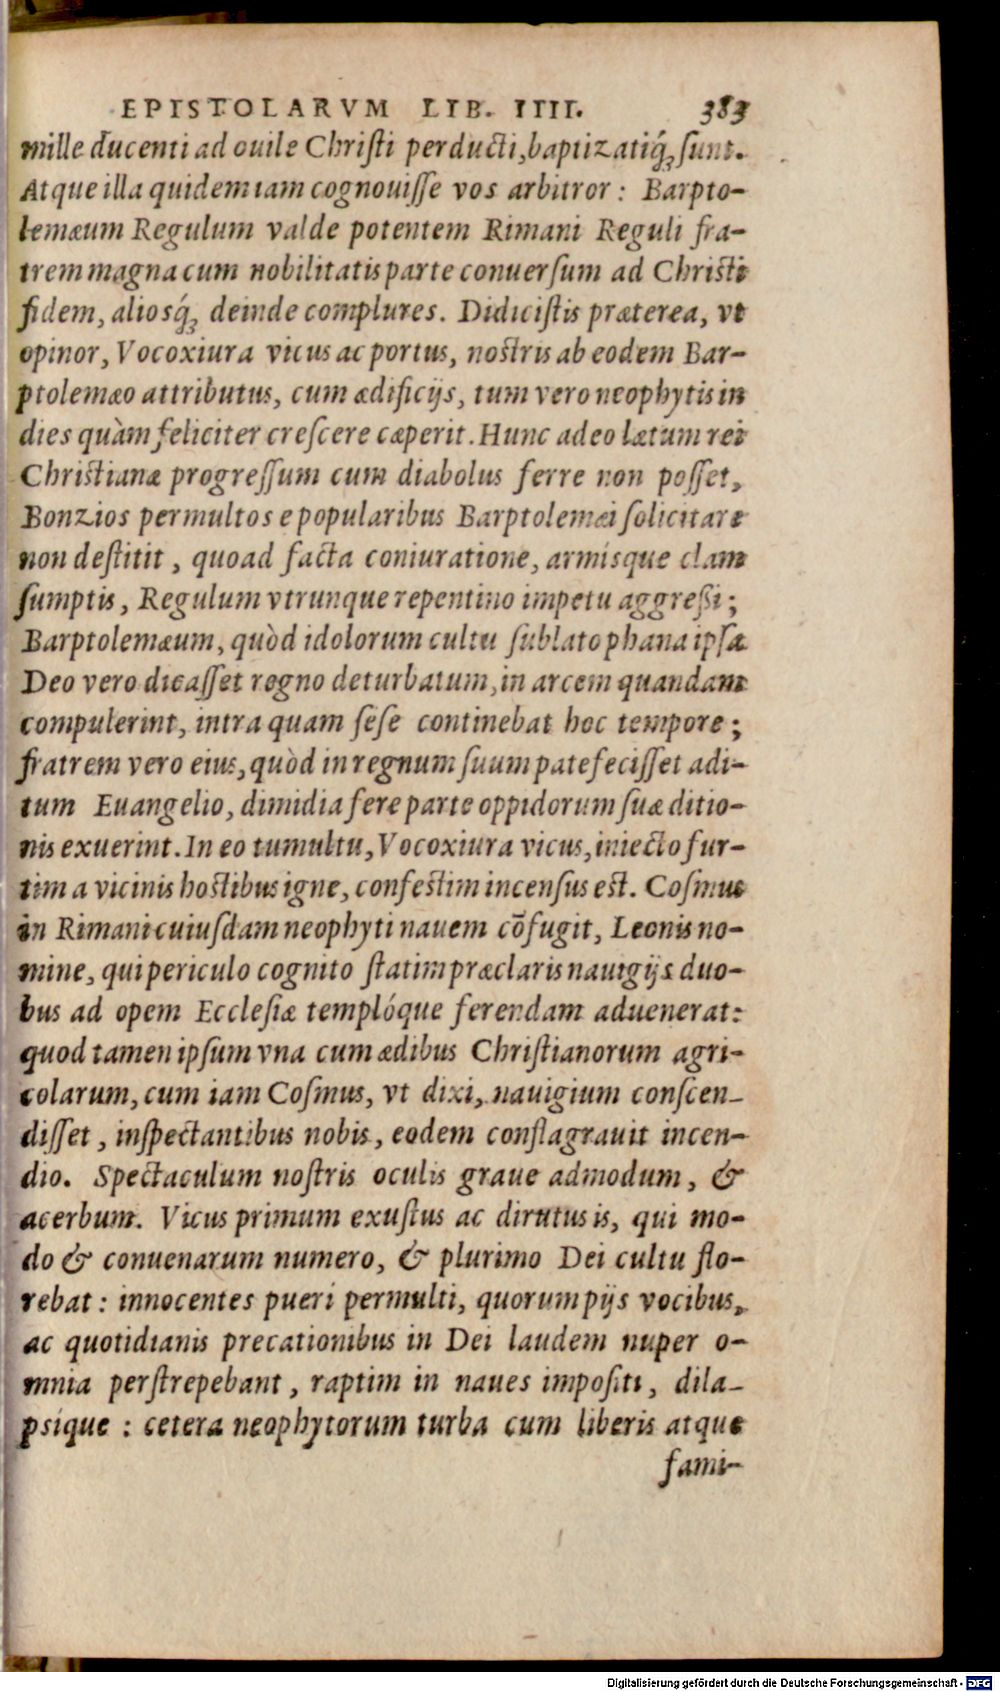 EPISTOLARVM LIB. IIII. 383
mille ducenti ad ouile Chriſti perducti, baptizatiq́; ſunt.
Atque illa quidem iam cognouiſſe vos arbitror: Barpto-
lemæum Regulum valde potentem Rimani Reguli fra-
trem magna cum nobilitatis parte conuerſum ad Chriſti
fidem, alioſq́; deinde complures. Didiciſtis præterea, vt
opinor, Vocoxiura vicus ac portus, noſtris ab eodem Bar-
ptolemæo attributus, cum ædificijs, tum vero neophytis in
dies quàm feliciter creſcere cæperit. Hunc adeo lætum rei
Chriſtianæ progreſſum cum diabolus ferre non poſſet,
Bonzios permultos e popularibus Barptolemæi ſolicitare
non deſtitit, quoad facta coniuratione, armiſque clam
ſumptis, Regulum vtrunque repentino impetu aggreßi;
Barptolemæum, quòd idolorum cultu ſublato phana ipſa
Deo vero dicaſſet regno deturbatum, in arcem quandam
compulerint, intra quam ſeſe continebat hoc tempore;
fratrem vero eius, quòd in regnum ſuum patefeciſſet adi-
tum Euangelio, dimidia fere parte oppidorum ſuæ ditio-
nis exuerint. In eo tumultu, Vocoxiura vicus, iniecto fur-
tim a vicinis hoſtibus igne, confeſtim incenſus eſt. Coſmus
in Rimani cuiuſdam neophyti nauem cõfugit, Leonis no-
mine, qui periculo cognito ſtatim præclaris nauigijs duo-
bus ad opem Eccleſiæ templóque ferendam aduenerat:
quod tamen ipſum vna cum ædibus Chriſtianorum agri-
colarum, cum iam Coſmus, vt dixi, nauigium conſcen-
diſſet, inſpectantibus nobis, eodem conflagrauit incen-
dio. Spectaculum noſtris oculis graue admodum, &
acerbum. Vicus primum exuſtus ac dirutus is, qui mo-
do & conuenarum numero, & plurimo Dei cultu flo-
rebat: innocentes pueri permulti, quorum pijs vocibus,
ac quotidianis precationibus in Dei laudem nuper o-
mnia perſtrepebant, raptim in naues impoſiti, dila-
pſique: cetera neophytorum turba cum liberis atque
fami-
Digitalisierung gefördert durch die Deutsche Forschungsgemeinschaft - DFG